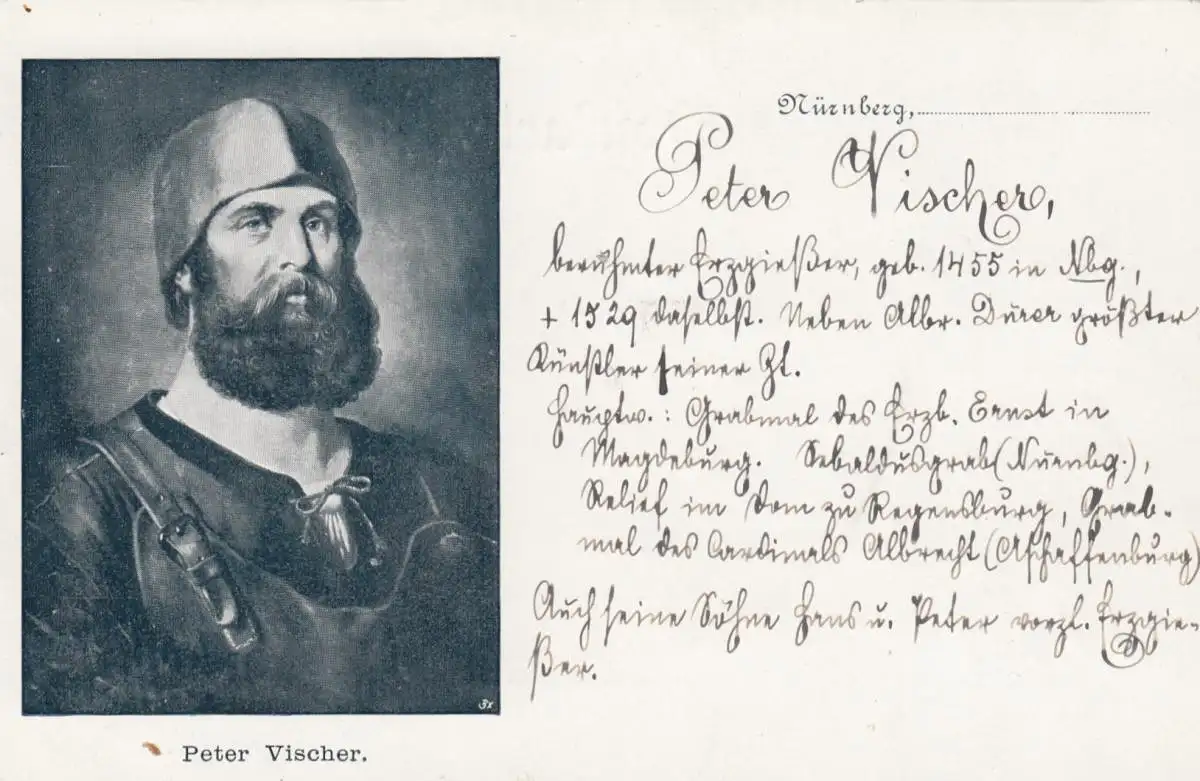 Nürnberg,
Peter Vischer,
berühmter Erzgießer, geb. 1455 in Nbg.,
+ 1529 daselbst. Neben Albr. Dürer größter
Künstler seiner Zt.
Hauptw.: Grabmal des Erzb. Ernst in
Magdeburg. Sebaldusgrab (Nürnbg.),
Relief im Dom zu Regensburg, Grab-
mal des Cardinals Albrecht (Aschaffenburg)
Auch seine Söhne Hans u. Peter vorzl. Erzgie-
ßer.
Peter Vischer.